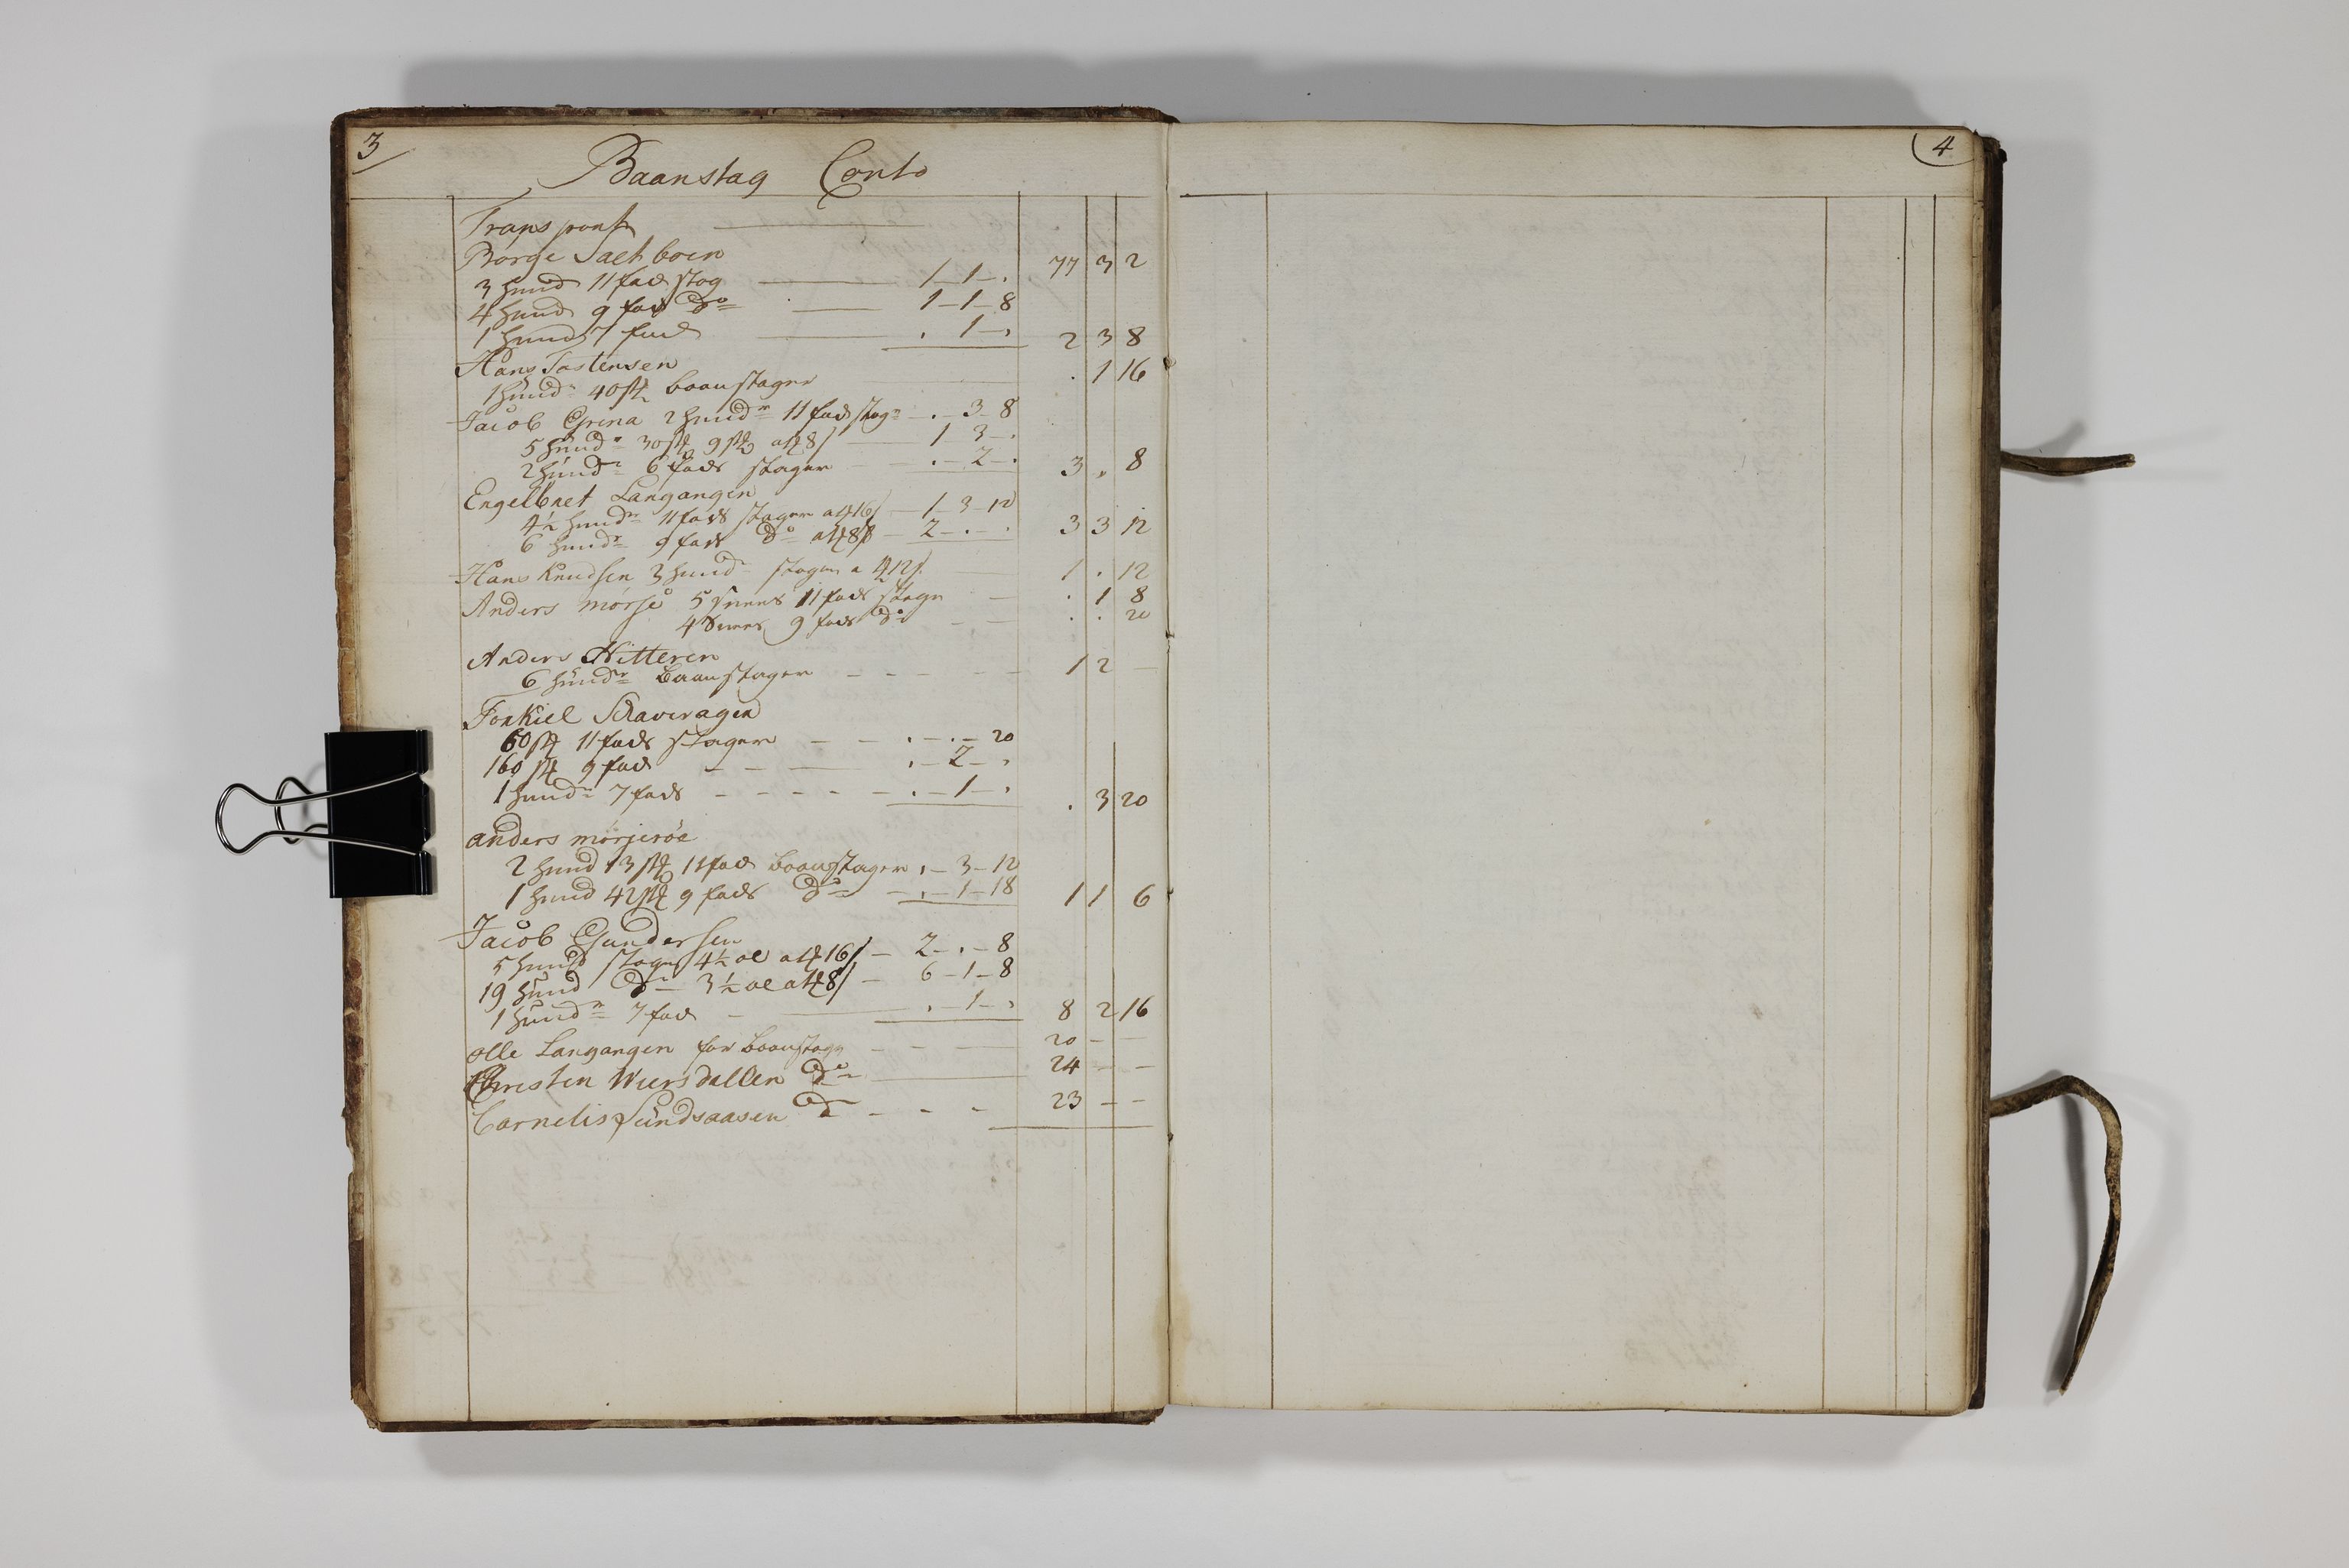 3
Baanstag Conto
Transport 77 3 2
Børge Saetboen
3 hund 11 fad stag 1 - 1 - .
4 hund 9 fad do 1 - 1 - 8
1 hund 7 fad . 1 - . 2 3 8
Hans Tostensen . 1 16
1 hund 40 st baanstager
Jacob Grena 2 hundr 11 fad stagr . - 3 - 8
5 hundr 30 st 9 at 8 s 1 3 - .
2 hundr 6 fads stager . - 2 - . 3 . 8
Engelbret Langangen
4½ hundr 11 fads stager at 16 s 1 - 3 - 12
6 hundr 9 fads do at 8 s 2 - . - . 3 3 12
Hans Knudsen 3 hundr stager a 12 s 1 . 12
Anders mørse 5 Snees 11 fads stagr . 1 8
4 Snees 9 fads do . . 20
Anders Hitteren
6 hundr Baanstager 1 2 -
Torkiel Skaveragen
60 st 11 fads stager . - . - 20
160 st 9 fad . - 2 - .
1 hundr 7 fads . - 1 - . . 3 20
anders mørjerøe
2 hund 13 st 11 fad baanstager . - 3 - 12
1 hund 42 st 9 fads do . - 1 - 18 1 1 6
Jacob Gundersen
5 hund stagr 4½ al at 16 s 2 - . - 8
19 hund do 3½ al at 8 s 6 - 1 - 8
1 hundr 7 fad . - 1 - . 8 2 16
olle Langangen for baanstagr 20 - -
Christen Wiersdallen do 24 - -
Cornelis Sundsaasen do 23 - -
4